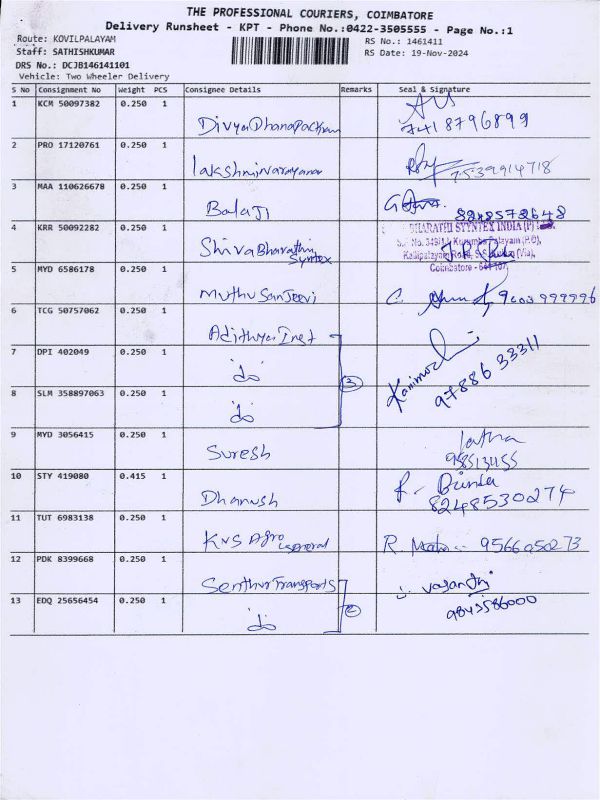 THE PROFESSIONAL COURIERS, COIMBATORE
Delivery Runsheet - KPT - Phone No.:0422-3505555 - Page No.:1
Route: KOVILPALAYAM RS No.: 1461411
Staff: SATHISHKUMAR RS Date: 19-Nov-2024
DRS No.: DCJB146141101
Vehicle: Two Wheeler Delivery
S No Consignment No Weight PCS Consignee Details Remarks Seal & Signature
1 KCM 50097382 0.250 1
7418796899
2 PRO 17120761 0.250 1
Lakshminarayanan 7539914718
3 MAA 110626678 0.250 1
Balaji 8248572648
4 KRR 50092282 0.250 1 BHARATHI SYNTEX INDIA (P)
Shiva Bharathi
Syntex
Coimbatore - 641 107
5 MYD 6586178 0.250 1
Muthu Sanjeevi 9603999996
6 TCG 50757062 0.250 1
Adithya Inst
7 DPI 402049 0.250 1
do 3 9788633311
8 SLM 358897063 0.250 1
do
9 MYD 3056415 0.250 1 latha
Suresh
10 STY 419080 0.415 1
Dhanush 8248530274
11 TUT 6983138 0.250 1
KNS Agro 9566050273
12 PDK 8399668 0.250 1
Senthur Transports
13 EDQ 25656454 0.250 1 9843586000
do 2